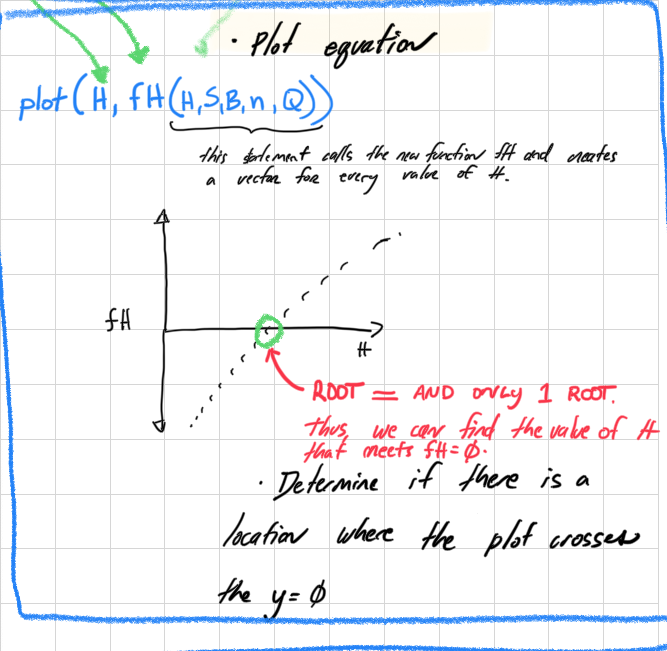 · Plot equation
plot(H, fH(H,S,B,n,Q))
this statement calls the new function fH and creates
a vector for every value of H.
fH
H
ROOT = AND ONLY 1 ROOT.
thus, we can find the value of H
that meets fH=∅.
· Determine if there is a
location where the plot crosses
the y=∅